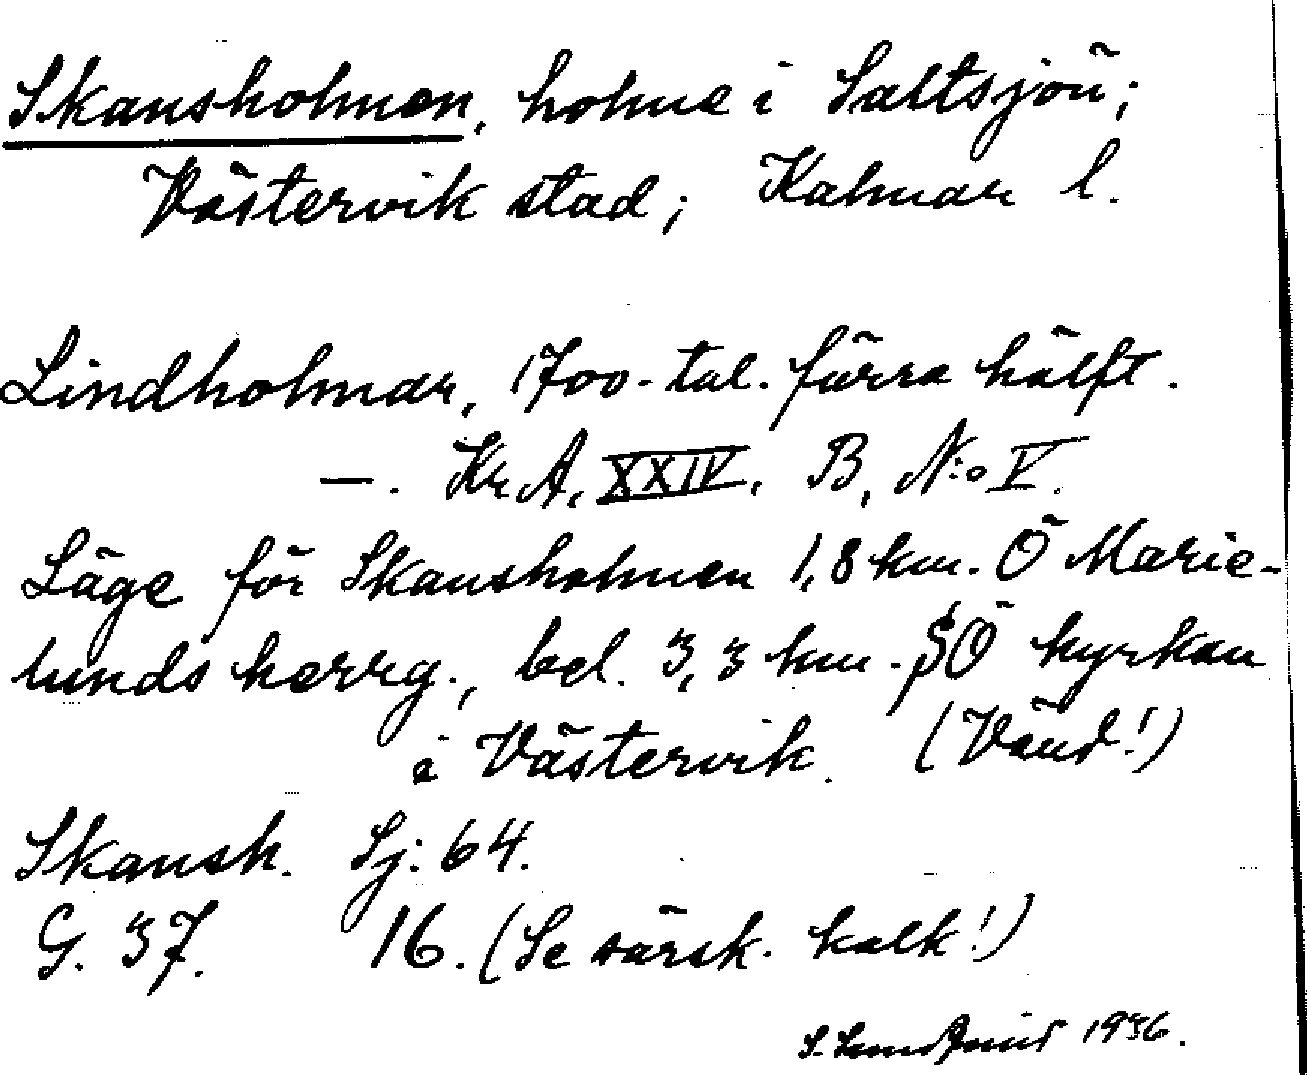 Skansholmen, holme i Saltsjön;
Västervik stad; Kalmar l.
Lindholmar, 1700-tal. förra hälft.
—. Kr.A. XXIV. B, N:o V.
Läge för Skansholmen 1,8 km. Ö Marie-
lunds herrg., bel. 3,3 km. SÖ kyrkan
i Västervik. (Vänd!)
Skansh. Sj. 64.
G. 37. 16. (Se särsk. kalk!)
1936.